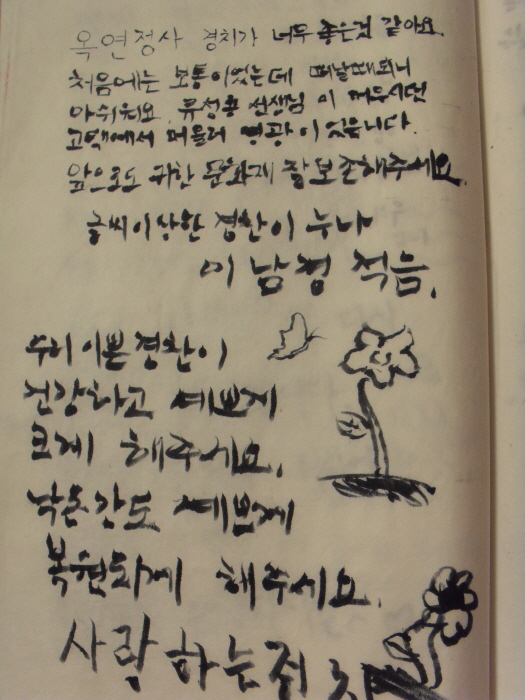 옥연정사 경치가 너무 좋은것 같아요.
처음에는 보통이었는데 떠날때되니
아쉬워요. 류성룡 선생님이 머무시던
고택에서 머물러 영광이었습니다.
앞으로도 귀한 문화재 잘보존해주세요.
글씨이상한 경찬이 누나
이남경 적음.
우리 이쁜경찬이
건강하고 예쁘게
크게 해주세요.
예쁘게
복원되게 해주세요.
사랑하는